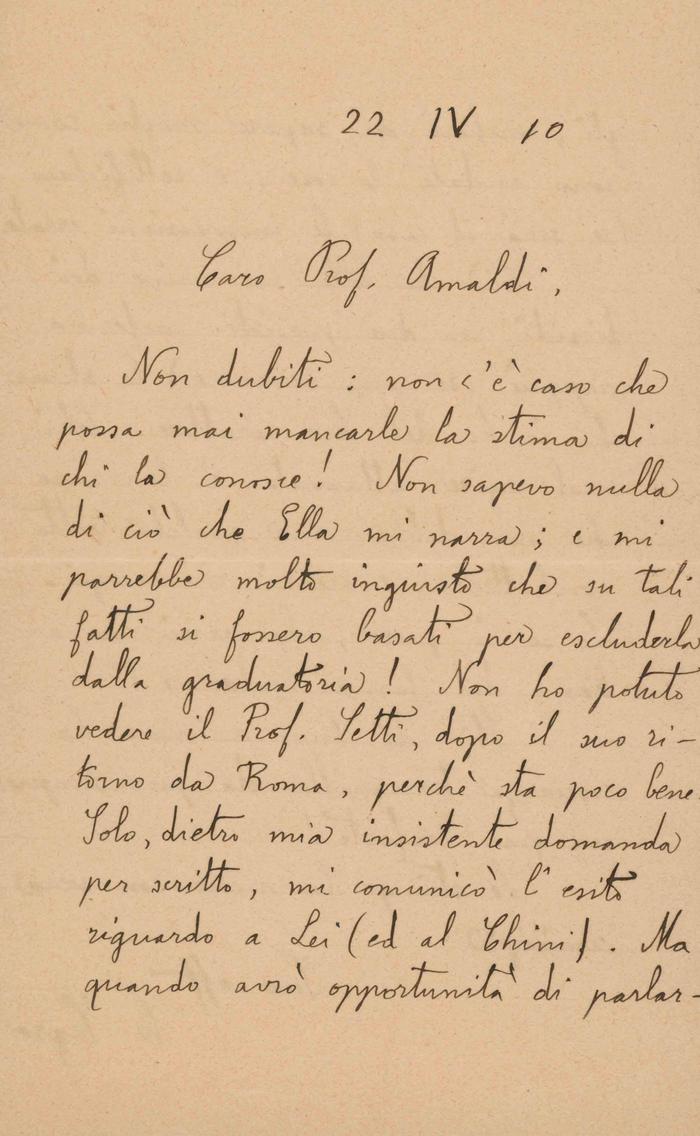 22 IV 10
Caro Prof. Amaldi,
Non dubiti : non c'è caso che
possa mai mancarle la stima di
chi la conosce! Non sapevo nulla
di ciò che Ella mi narra; e mi
parrebbe molto ingiusto che su tali
fatti si fossero basati per escluderla
dalla graduatoria! Non ho potuto
vedere il Prof. Setti, dopo il suo ri-
torno da Roma, perchè sta poco bene.
Solo, dietro mia insistente domanda
per scritto, mi comunicò l'esito
riguardo a Lei (ed al Chini). Ma
quando avrò opportunità di parlar-